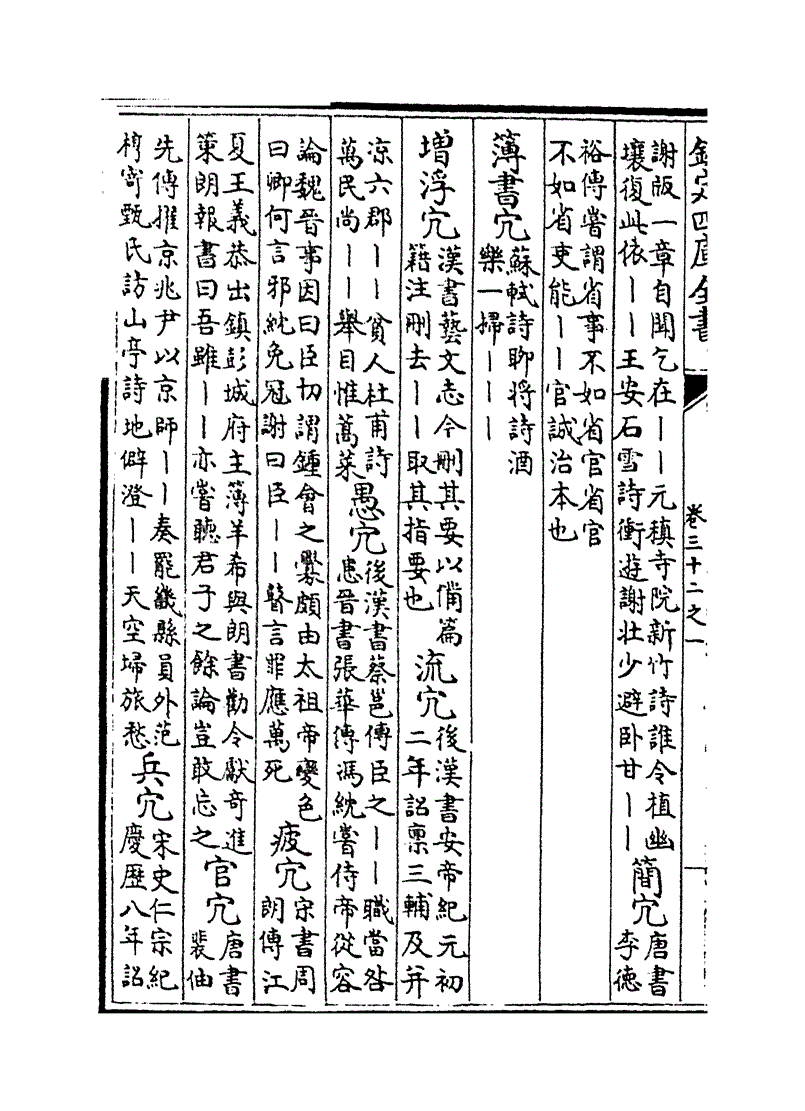 欽定四庫全書
卷三十二之一
謝版一章自聞乞在丨丨元稹寺院新竹詩誰令植幽
壤復此依丨丨王安石雪詩衝遊謝壯少避卧甘丨丨
簡宂
唐書
李德
裕傳嘗謂省事不如省官省官
不如省吏能丨丨官誠治本也
簿書宂
蘇軾詩聊将詩酒
樂一掃丨丨丨
增浮宂
漢書藝文志今刪其要以備篇
籍注刪去丨丨取其指要也
流宂
後漢書安帝紀元初
二年詔禀三輔及并
涼六郡丨丨貧人杜甫詩
萬民尚丨丨舉目惟蒿萊
愚宂
後漢書蔡邕傳臣之丨丨職當咎
患晉書張華傳馮紞嘗侍帝從容
論魏晉事因曰臣切謂鍾會之釁頗由太祖帝變色
曰卿何言邪紞免冠謝曰臣丨丨瞽言罪應萬死
疲宂
宋書周
朗傳江
夏王義恭出鎮彭城府主簿羊希與朗書勸令獻奇進
策朗報書曰吾雖丨丨亦嘗聽君子之餘論豈敢忘之
官宂
唐書
裴伷
先傳擢京兆尹以京師丨丨奏罷畿縣員外范
梈寄甄氏訪山亭詩地僻澄丨丨天空埽旅愁
兵宂
宋史仁宗紀
慶歷八年詔